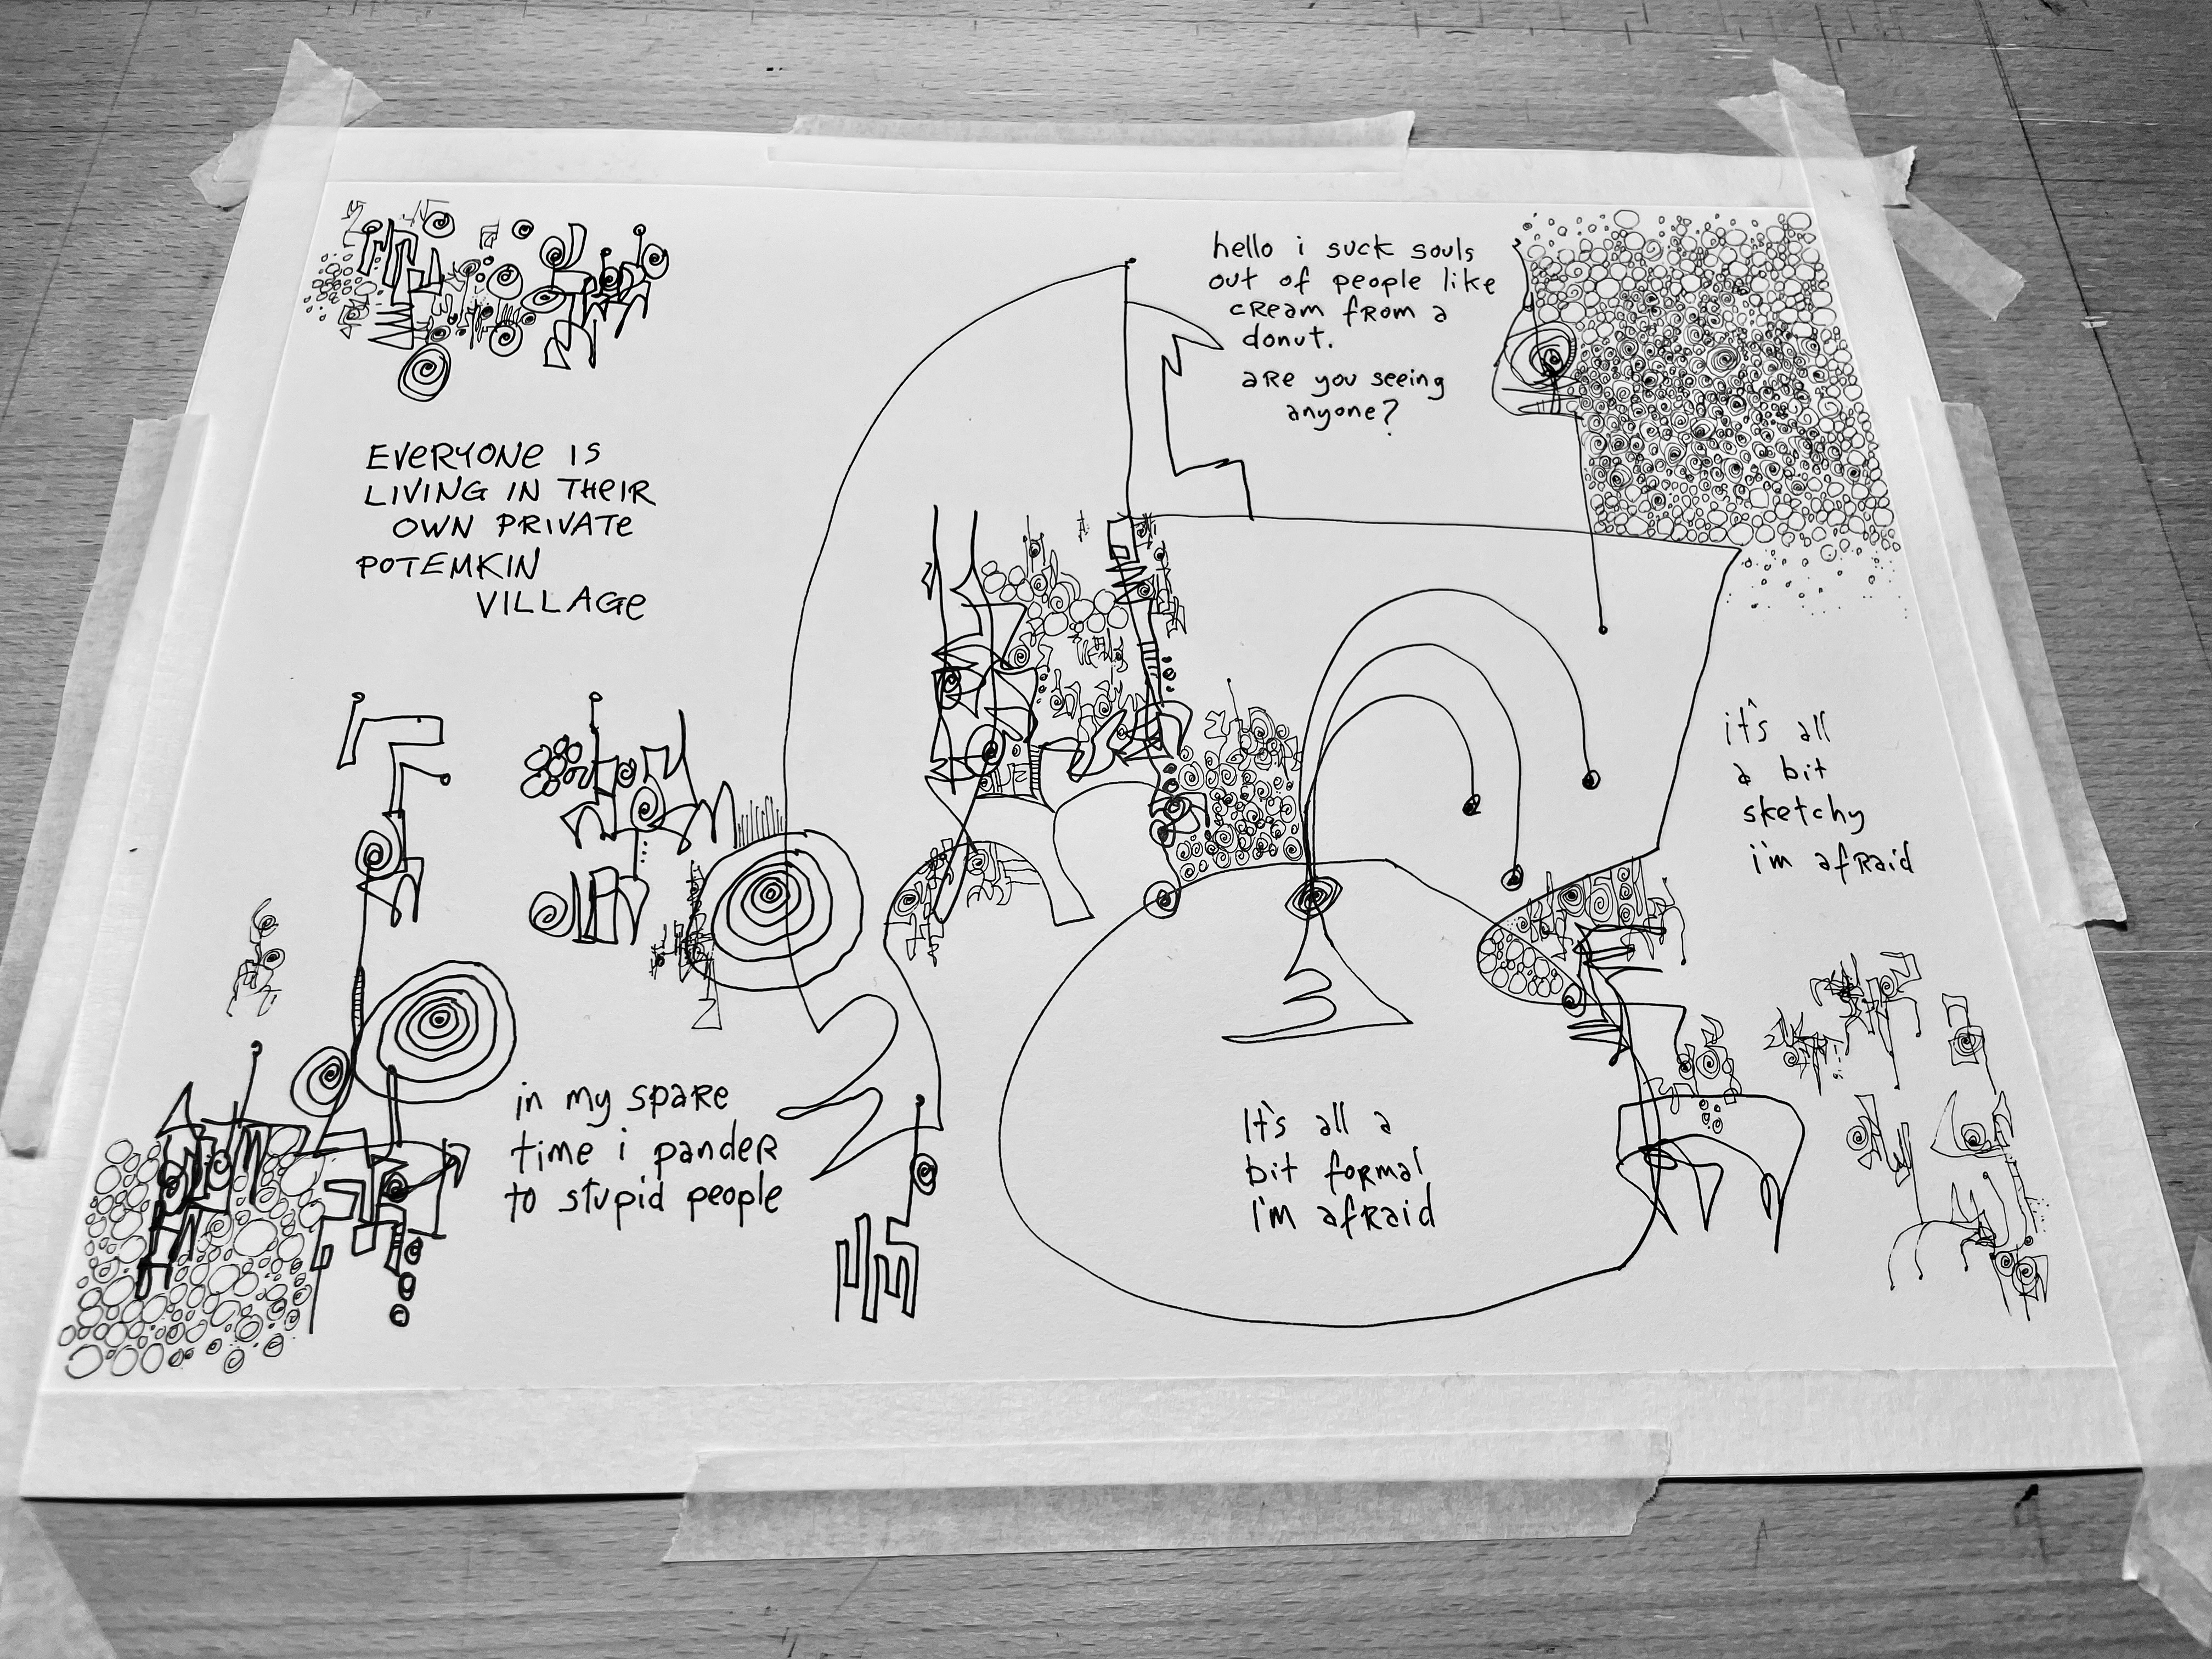 hello i suck souls
out of people like
cream from a
donut.
are you seeing
anyone?
EVERYONE IS
LIVING IN THEIR
OWN PRIVATE
POTEMKIN
VILLAGE
it's all
a bit
sketchy
i'm afraid
in my spare
time i pander
to stupid people
It's all a
bit formal
i'm afraid